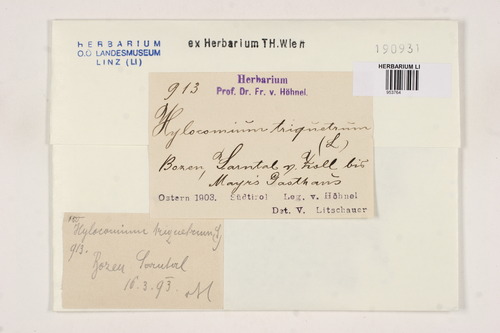 HERBARIUM
O.Ö. LANDESMUSEUM
LINZ (LI)
ex Herbarium TH.Wien
190931
HERBARIUM LI
953764
913
Herbarium
Prof. Dr. Fr. v. Höhnel.
Hylocomium triquetrum
(L.)
Bozen, Sarntal v. Zoll bis
Mayrs Gasthaus
Ostern 1903. Südtirol Leg. v. Höhnel
Det. V. Litschauer
Hylocomium triquetrum
913.
Bozen Sarntal
16.3.93.